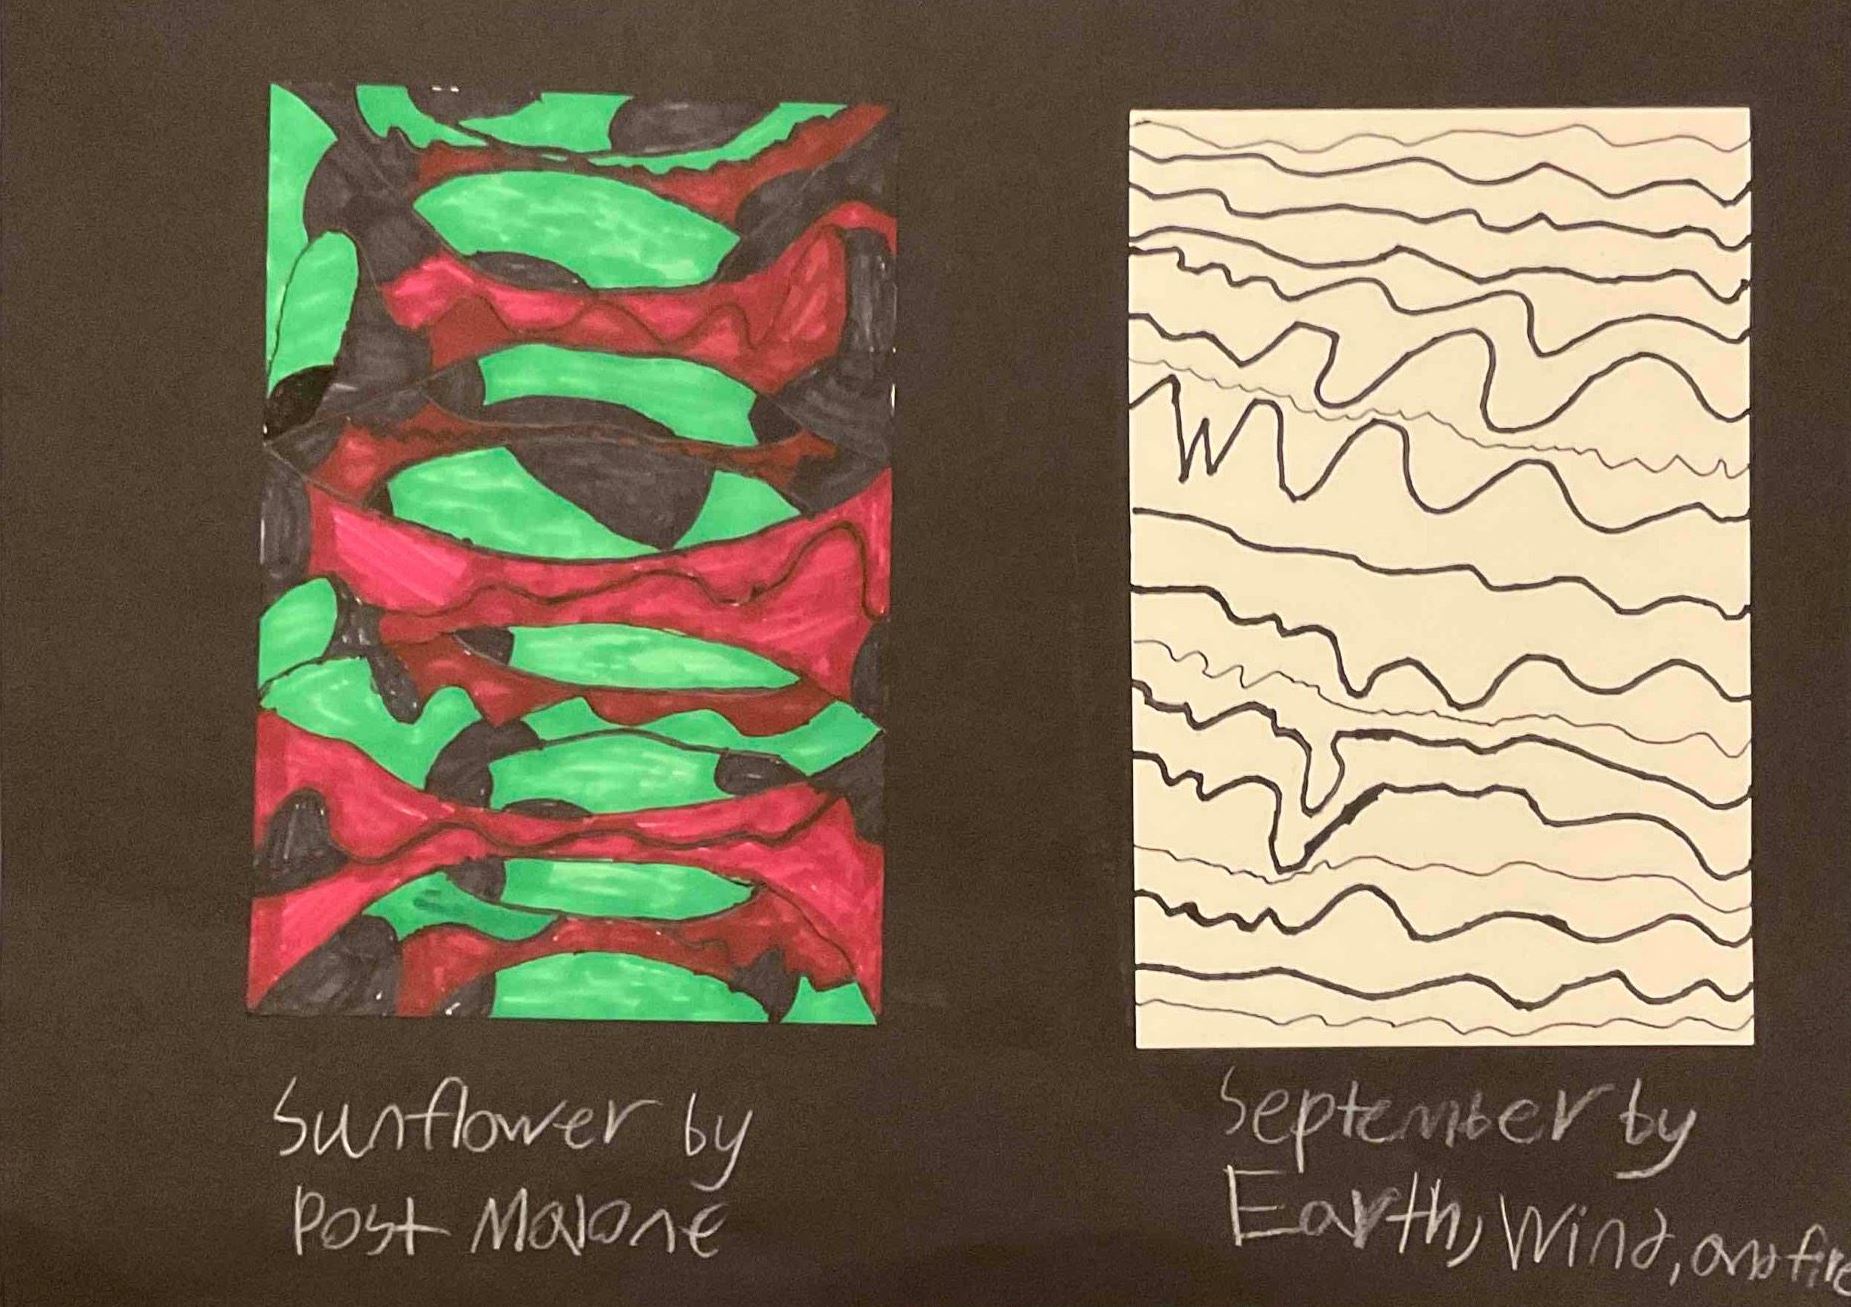 Sunflower by
Post Malone
September by
Earth, Wind, and fire